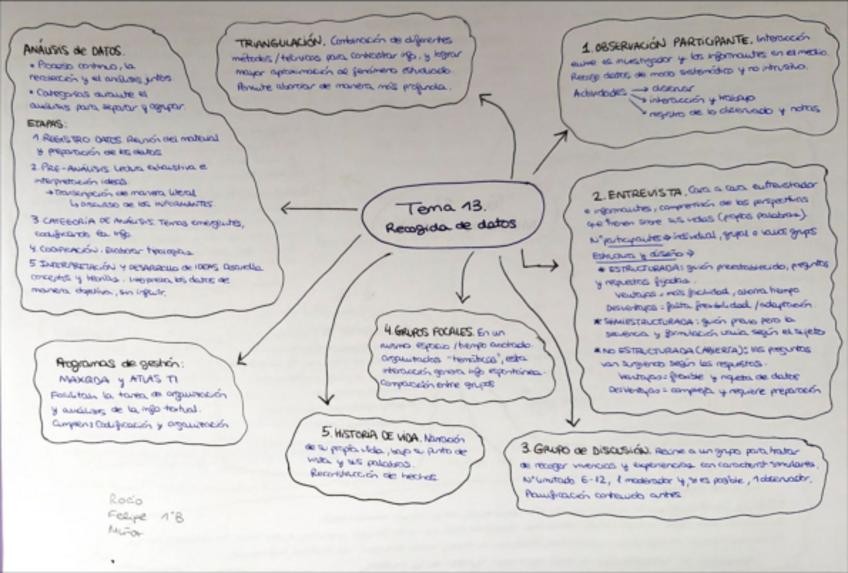 Tema 13.
Recogida de datos
ANÁLISIS de DATOS.
• Proceso continuo, la
recolección y el análisis juntos
• Categorías durante el
análisis para separar y agrupar.
ETAPAS:
1. REGISTRO DATOS. Reunión del material
y preparación de los datos
2. PRE-ANÁLISIS. Lectura exhaustiva e
interpretación ideas.
→ Transcripción de manera literal
discurso de los INFORMANTES.
3. CATEGORÍA DE ANÁLISIS. Temas emergentes,
codificando la info
4. CODIFICACIÓN. Elaborar tipologías
5. INTERPRETACIÓN Y DESARROLLO de IDEAS. Desarrolla
conceptos y teorías. Interpreta los datos de
manera objetiva, sin influir.
TRIANGULACIÓN. Combinación de diferentes
métodos/técnicas para contrastar info, y lograr
mayor aproximación al fenómeno estudiado.
Permite abordar de manera más profunda.
1. OBSERVACIÓN PARTICIPANTE. Interacción
entre el investigador y los informantes en el medio.
Recoge datos de modo sistemático y no intrusivo.
Actividades → observar
→ interacción y trabajo
→ registro de lo observado y notas
2. ENTREVISTA. Cara a cara entrevistador
e informantes, comprensión de las perspectivas
que tienen sobre sus vidas (propias palabras).
Nº participantes → individual, grupal o varios grupos
Estructura y diseño →
* ESTRUCTURADA: guión preestablecido, preguntas
y respuestas fijadas.
Ventajas = más facilidad, ahorra tiempo
Desventajas = falta flexibilidad/adaptación.
* SEMIESTRUCTURADA: guión previo pero la
secuencia y formulación varía según el sujeto
* NO ESTRUCTURADA (ABIERTA): las preguntas
van surgiendo según las respuestas.
Ventajas = flexible y riqueza de datos
Desventajas = compleja y requiere preparación
3. GRUPO de DISCUSIÓN. Reúne a un grupo para tratar
de recoger vivencias y experiencias con caracterist. similares.
Nº limitado 6-12, 1 moderador y, si es posible, 1 observador.
Planificación contenido antes
4. GRUPOS FOCALES. En un
mismo espacio/tiempo acotado
organizados "temáticas", esta
interacción genera info espontánea.
Comparación entre grupos
5. HISTORIA DE VIDA. Narración
de su propia vida, bajo su punto de
vista y sus palabras.
Reconstrucción de hechos
Programas de gestión:
MAXQDA y ATLAS TI
Facilitan la tarea de organización
y análisis de la info textual.
Codificación y organización
Rocío
Felipe 1ºB
Muñoz